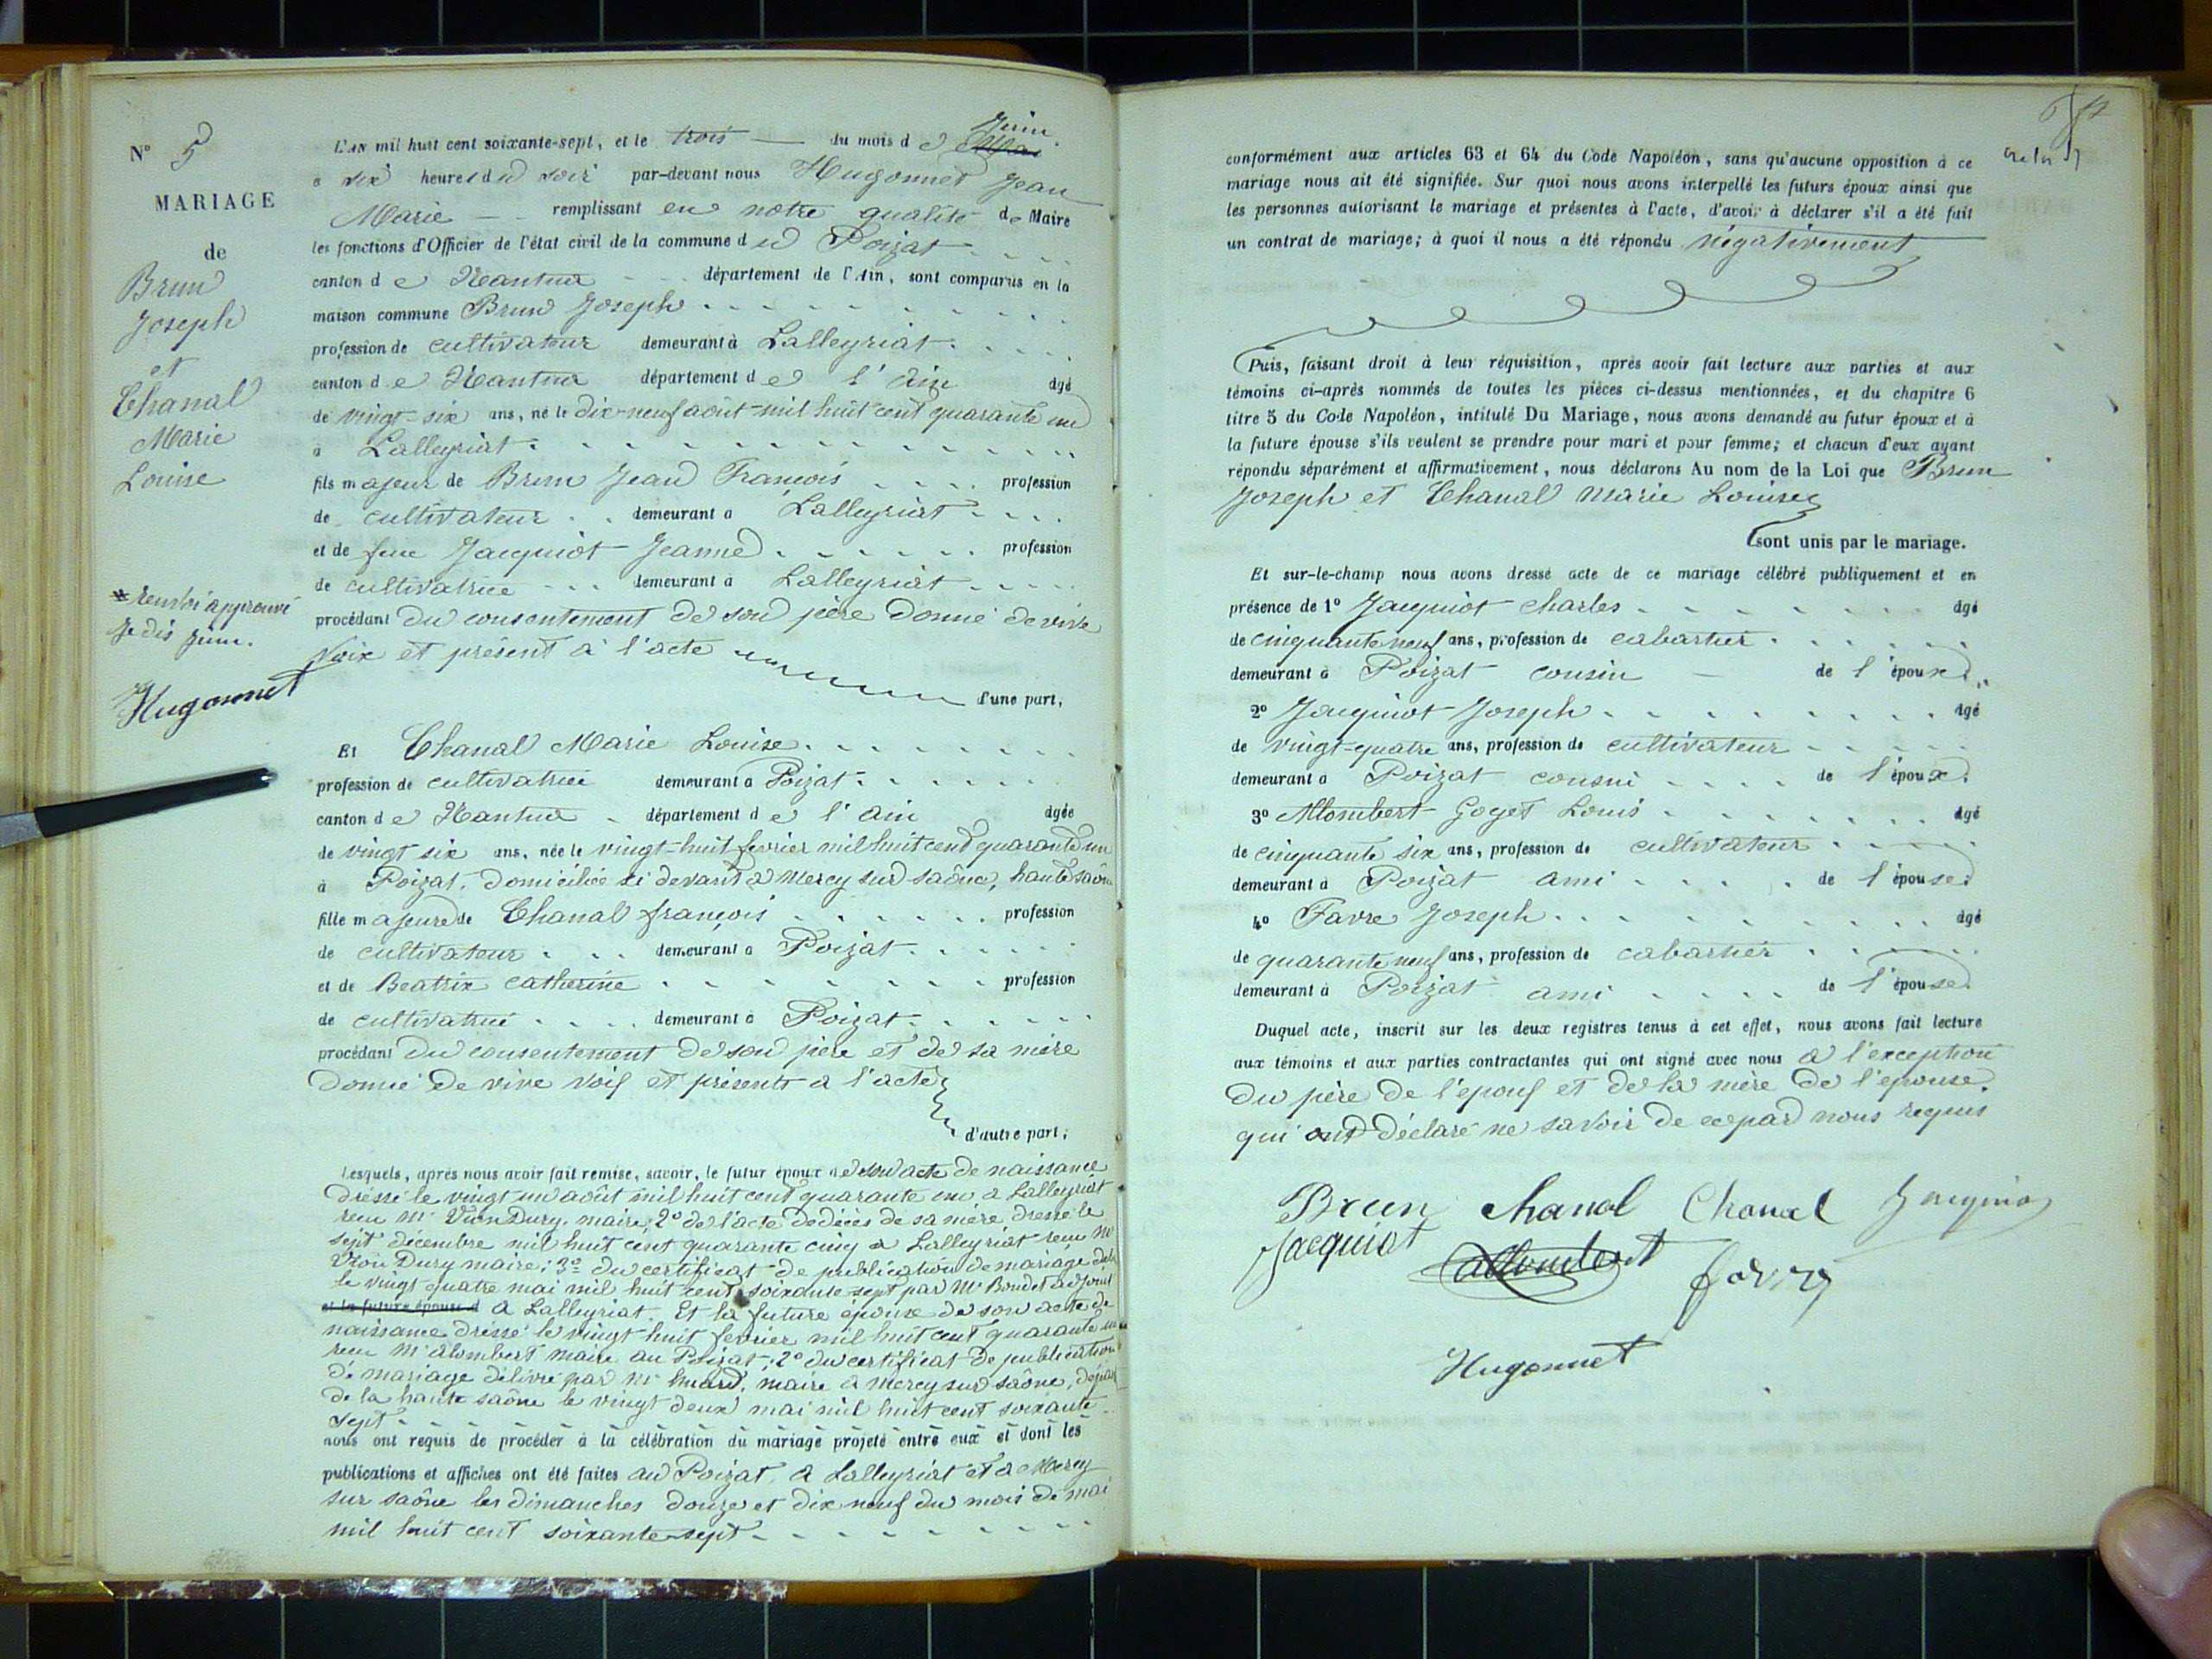 N° 5
MARIAGE
de
Brun
Joseph
et
Chanal
Marie
Louise
renvoi approuvé
Je dis juin.
Hugonnet
L'AN mil huit cent soixante-sept, et le trois du mois de Juin
a six heures du soir par-devant nous Hugonnet Jean
Marie remplissant en notre qualité de Maire
les fonctions d'Officier de l'état civil de la commune du Poizat
canton de Nantua département de l'Ain, sont comparus en la
maison commune Brun Joseph
profession de cultivateur demeurant à Lalleyriat
canton de Nantua département de l'Ain âgé
de vingt-six ans, né le dix-neuf août mil huit cent quarante un
à Lalleyriat
fils majeur de Brun Jean François profession
de cultivateur demeurant à Lalleyriat
et de feue Jacquiot Jeanne profession
de cultivatrice demeurant à Lalleyriat
procédant du consentement de son père donné de vive
voix et présent à l'acte
d'une part,
Et Chanal Marie Louise
profession de cultivatrice demeurant à Poizat
canton de Nantua département de l'Ain âgée
de vingt six ans, née le vingt-huit fevrier mil huit cent quarante un
à Poizat, domiciliée ci devant à Mercey sur saône, haute saône
fille majeure de Chanal françois profession
de cultivateur demeurant à Poizat
et de Beatrix catherine profession
de cultivatrice demeurant à Poizat
procédant du consentement de son père et de sa mère
donné de vive voix et présents a l'acte
d'autre part;
Lesquels, après nous avoir fait remise, savoir, le futur époux de son acte de naissance
dressé le vingt un août mil huit cent quarante un a Lalleyriat
reçu Mr Vion Dury, maire; 2° de l'acte de décès de sa mère, dressé le
sept decembre mil huit cent quarante cinq a Lalleyriat reçu Mr
Vion Dury maire; 3° du certificat de publication de mariage
le vingt quatre mai mil huit cent soixante-sept par Mr Bondet adjoint
et la future épouse d a Lalleyriat. Et la future epouse de son acte de
naissance dressé le vingt huit fevrier mil huit cent quarante un
reçu Mr alombert maire au Poizat; 2° du certificat de publication
de mariage délivré par Mr maire à mercey sur saône, dépt
de la haute saône le vingt deux mai mil huit cent soixante
sept
nous ont requis de procéder à la célébration du mariage projeté entre eux et dont les
publications et affiches ont été faites au Poizat, a Lalleyriat et a Mercey
sur saône les dimanches douze et dix neuf du mois de mai
mil huit cent soixante sept
conformément aux articles 63 et 64 du Code Napoléon, sans qu'aucune opposition à ce
mariage nous ait été signifiée. Sur quoi nous avons interpellé les futurs époux ainsi que
les personnes autorisant le mariage et présentes à l'acte, d'avoir à déclarer s'il a été fait
un contrat de mariage; à quoi il nous a été répondu négativement
Puis, faisant droit à leur réquisition, après avoir fait lecture aux parties et aux
témoins ci-après nommés de toutes les pièces ci-dessus mentionnées, et du chapitre 6
titre 5 du Code Napoléon, intitulé Du Mariage, nous avons demandé au futur époux et à
la future épouse s'ils veulent se prendre pour mari et pour femme; et chacun d'eux ayant
répondu séparément et affirmativement, nous déclarons Au nom de la Loi que Brun
Joseph et Chanal Marie Louise
sont unis par le mariage.
Et sur-le-champ nous avons dressé acte de ce mariage célébré publiquement et en
présence de 1° Jacquiot Charles âgé
de cinquante neuf ans, profession de cabartier
demeurant à Poizat cousin de l'épouse
2° Jacquiot Joseph âgé
de vingt-quatre ans, profession de cultivateur
demeurant à Poizat cousin de l'époux
3° Allombert Goget Louis âgé
de cinquante six ans, profession de cultivateur
demeurant à Poizat ami de l'épouse
4° Favre Joseph âgé
de quarante neuf ans, profession de cabartier
demeurant à Poizat ami de l'épouse
Duquel acte, inscrit sur les deux registres tenus à cet effet, nous avons fait lecture
aux témoins et aux parties contractantes qui ont signé avec nous a l'exception
du père de l'epoux et de la mère de l'epouse.
qui ont déclaré ne savoir de ce par nous requis
Brun Chanal Chanal Jacquiot
Jacquiot allombert favre
Hugonnet